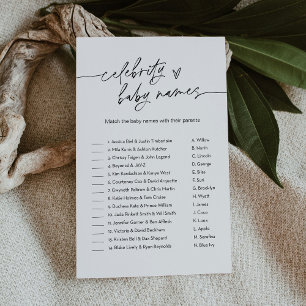 celebrity
baby names
Match the baby names with their parents
1. Jessica Biel & Justin Timberlake
A. Willow
2. Mila Kunis & Ashton Kutcher
B. North
3. Chrissy Teigen & John Legend
C. Lincoln
4. Beyoncé & JAYZ
D. Silas
5. Kim Kardashian & Kanye West
E. George
6. Courteney Cox & David Arquette
F. Suri
7. Gwyneth Paltrow & Chris Martin
G. Brooklyn
8. Katie Holmes & Tom Cruise
H. Wyatt
9. Duchess Kate & Prince William
I. James
10. Jada Pinkett Smith & Will Smith
J. Coco
11. Jennifer Garner & Ben Affleck
K. Luna
12. Victoria and David Beckham
L. Apple
13. Kristen Bell & Dax Shepard
M. Seraphina
14. Blake Lively & Ryan Reynolds
N. Blue Ivy